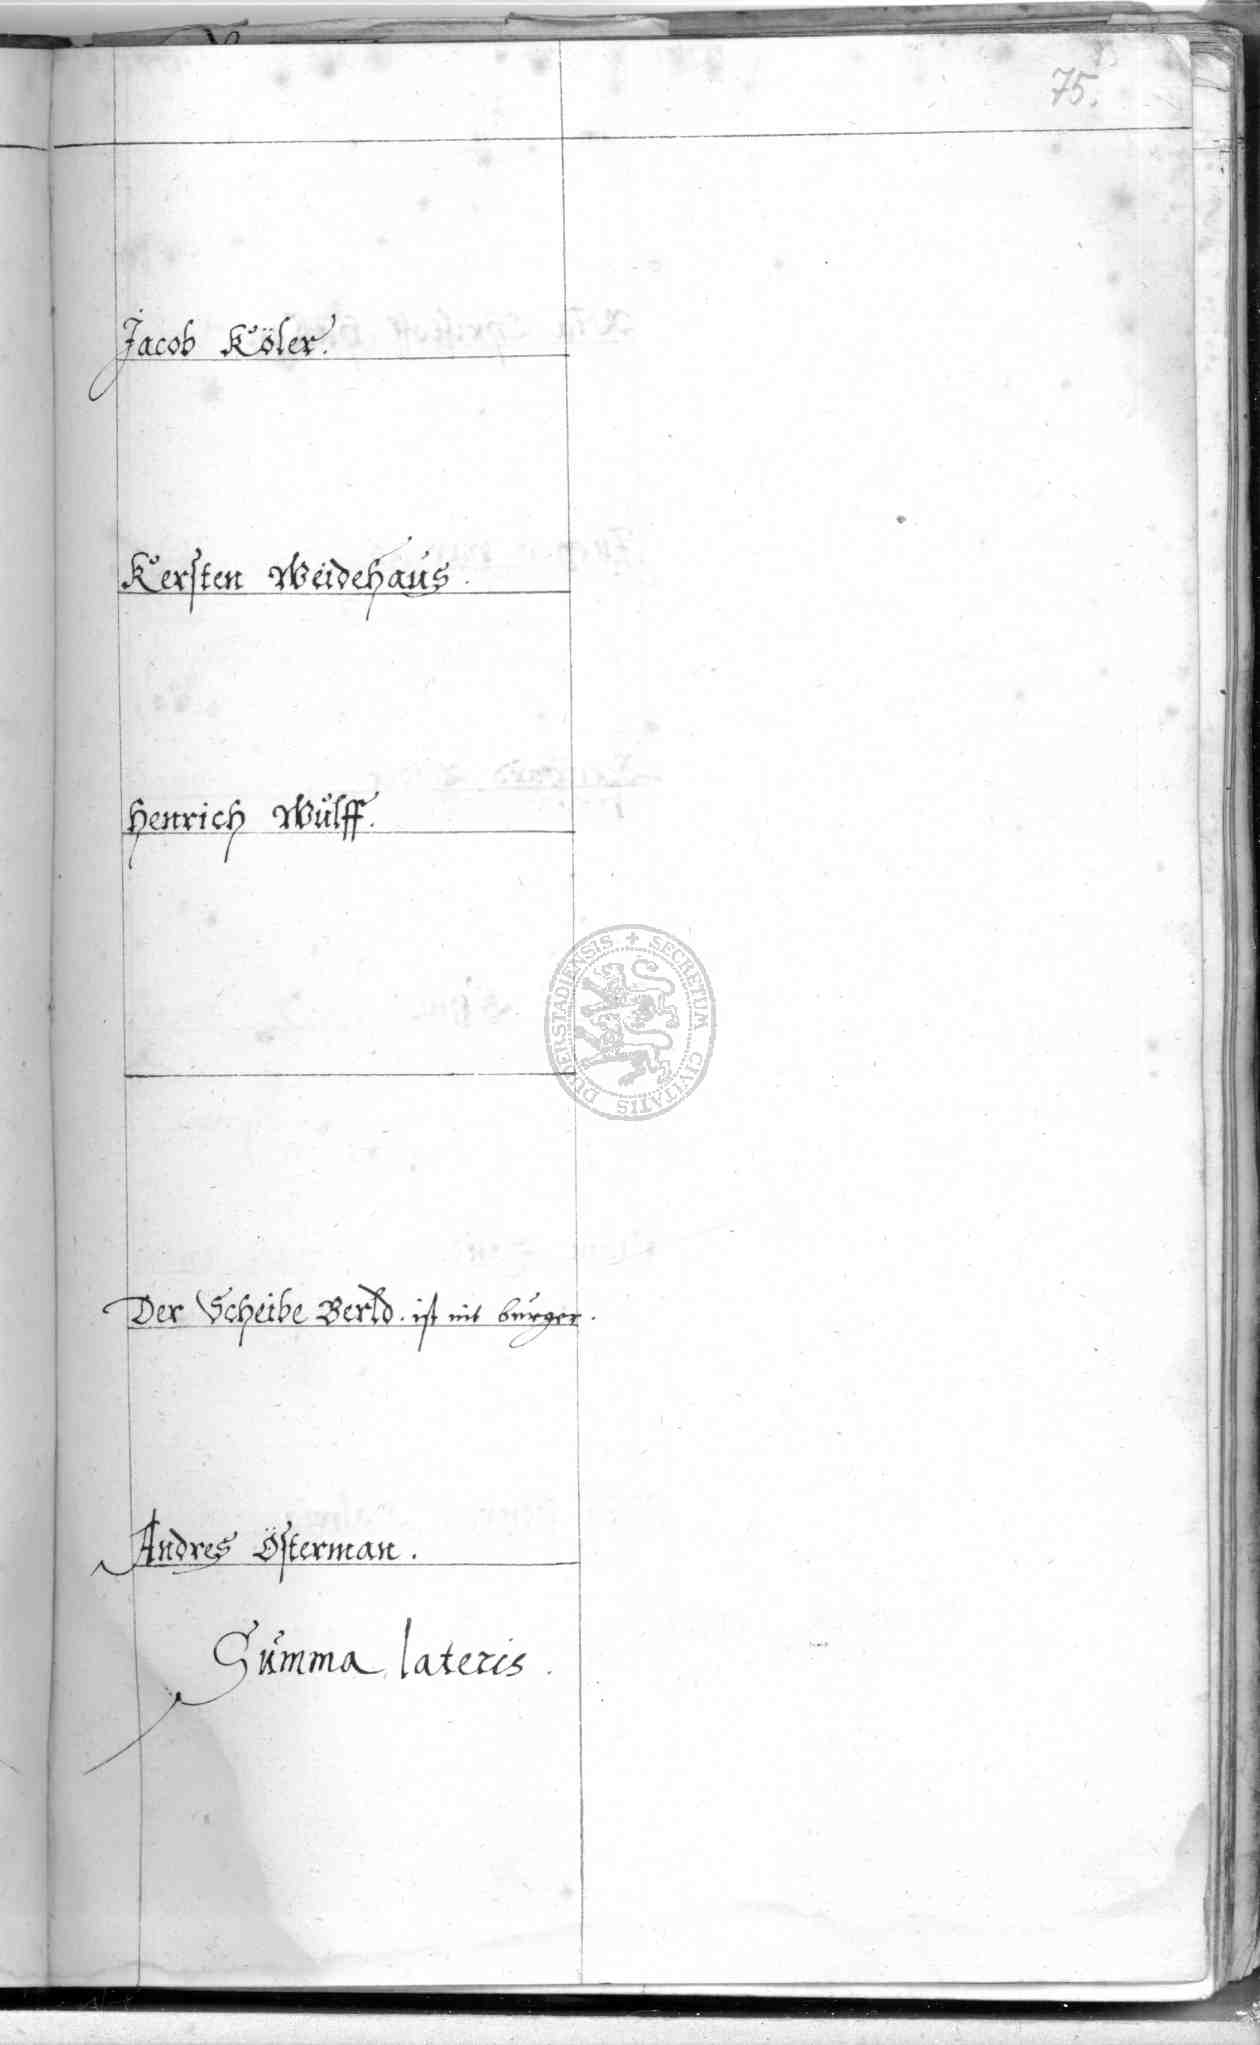 75.
Jacob Köler.
Kersten Weidehaus.
Henrich Wulff.
SECRETUM CIVITATIS DUDERSTADIENSIS
Der Scheibe Berld. ist nit burger.
Andres Österman.
Summa lateris.